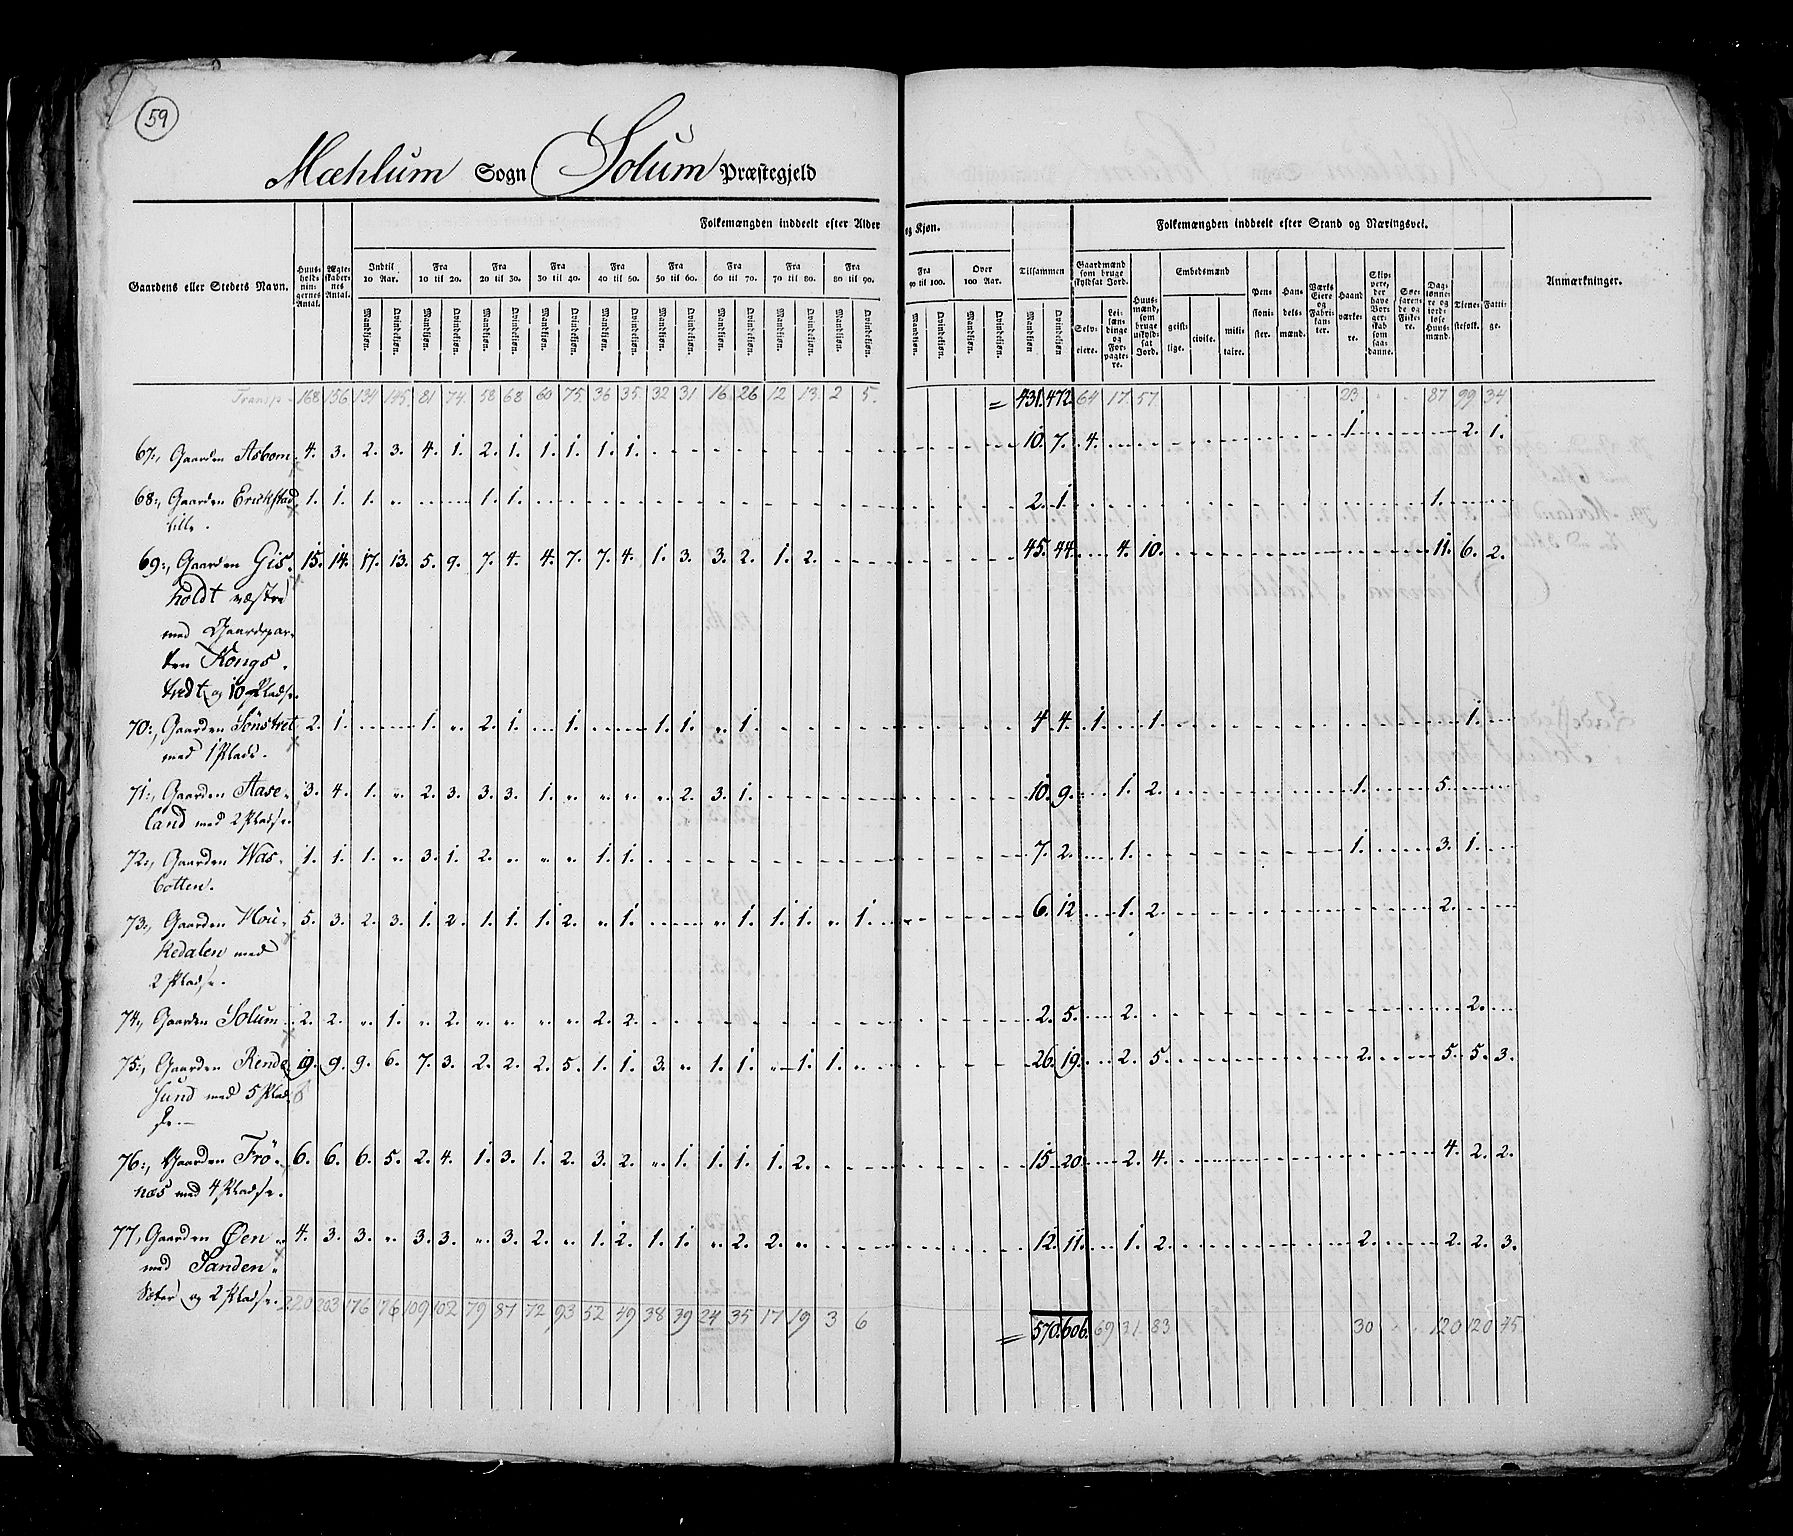 59
Mæhlum Sogn Solum Præstegjeld
Folkemængden inddeelt efter Alder og Kjøn.
Folkemængden inddeelt efter Stand og Næringsvei.
Gaardens eller Stedets Navn.
Huusholdningernes Antal.
Ægteskabernes Antal.
Indtil 10 Aar.
Fra 10 til 20.
Fra 20 til 30.
Fra 30 til 40.
Fra 40 til 50.
Fra 50 til 60.
Fra 60 til 70.
Fra 70 til 80.
Fra 80 til 90.
Fra 90 til 100.
Over 100 Aar.
Tilsammen
Mandkiøn. Qvindekiøn. Mandkiøn. Qvindekiøn. Mandkiøn. Qvindekiøn. Mandkiøn. Qvindekiøn. Mandkiøn. Qvindekiøn. Mandkiøn. Qvindekiøn. Mandkiøn. Qvindekiøn. Mandkiøn. Qvindekiøn. Mandkiøn. Qvindekiøn. Mandkiøn. Qvindekiøn. Mandkiøn. Qvindekiøn. Mandkiøn Qvindekiøn
Gaardmænd som bruge skyldsat Jord.
Selveiere.
Leilændinge og Forpagtere.
Huusmænd, som bruge uskyldsat Jord.
Embedsmænd
geistlige. civile. militaire.
Pensionister.
Handelsmænd.
Værks Eiere og Fabrikanter.
Haandværkere.
Skippere, der have Borgerskab som saadanne.
Søefarende og Fiskere.
Daglønnere og jordløse Huusmænd.
Tienestefolk.
Fattige.
Anmærkninger.
Transp. 168 156 134 145. 81 74. 58 68 60 75. 36 35. 32 31 16. 26 12 13. 2 5. = 431. 472. 64 17. 57 23. 87 99 34
67., Gaarden Asbom. 4. 3. 2. 3. 4. 1. 2. 1. 1. 1. 1. 1. 10. 7. 4. 1. 2. 1.
68., Gaarden Erikstad 1. 1. 1. „ 1. 1. 2. 1. 1.
lille.
69., Gaarden Gis- 15. 14. 17. 13. 5. 9. 7. 4. 4. 7. 7. 4. 1. 3. 3. 2. 1. 2. 45. 44. 4. 10. 11. 6. 2.
holdt væstre
med Gaardspar-
ten Kongs-
tvedt og 10 Pladse.
70., Gaarden Sönstret 2. 1. 1. „ 2. 1. 1. 1. 1. „ 1. 4. 4. 1. 1. 1.
med 1 Plads.
71., Gaarden Aase- 3. 4. 1. „ 2. 3. 3. 3. 1. „ „ „ „ 2. 3. 1. 10. 9. 1. 2. 1. 5.
land med 2 Pladse.
72., Gaarden Was- 1. 1. 1. „ 3. 1. 2. „ „ „ 1. 1. 7. 2. 1. 1. 3. 1.
botten.
73., Gaarden Hou- 5. 3. 2. 3. 1. 2. 1. 1. 1. 2. „ 1. „ 1. 1. 1. „ 1. 6. 12 1. 2. 2.
kedalen med
2 Pladse.
74., Gaarden Solum 2. 2. „ 1. „ 2. „ „ „ „ 2. 2. 2. 5. 2. 2.
75., Gaarden Rende- 19. 9. 9. 6. 7. 3. 2. 2. 2. 5. 1. 1. 3. „ 1. 1. „ 1. 1. „ 26. 19. 2. 5. 2. 5. 5. 3.
sund med 5 Plad-
se.
76., Gaarden Frö- 6. 6. 6. 5. 2. 4. 1. 3. 1. 2. 3. 2. „ 1. 1. 1. 1. 2. 15. 20. 2. 4. 4. 2. 2.
næs med 4 Pladse.
77., Gaarden Øen 4. 3. 3. „ 3. 3. „ 3. 2. „ 1. 2. 1. 1. „ 2. 2. „ 12. 11. 1. 2. 2. 2. 2. 3.
med Sanden
Sæter og 2 Pladse.
220 203 176 176 109 102 79 87 72 93 52 49 38 39 24 35 17 19 3 6 = 570. 606. 69 31. 83 30 120 120 45